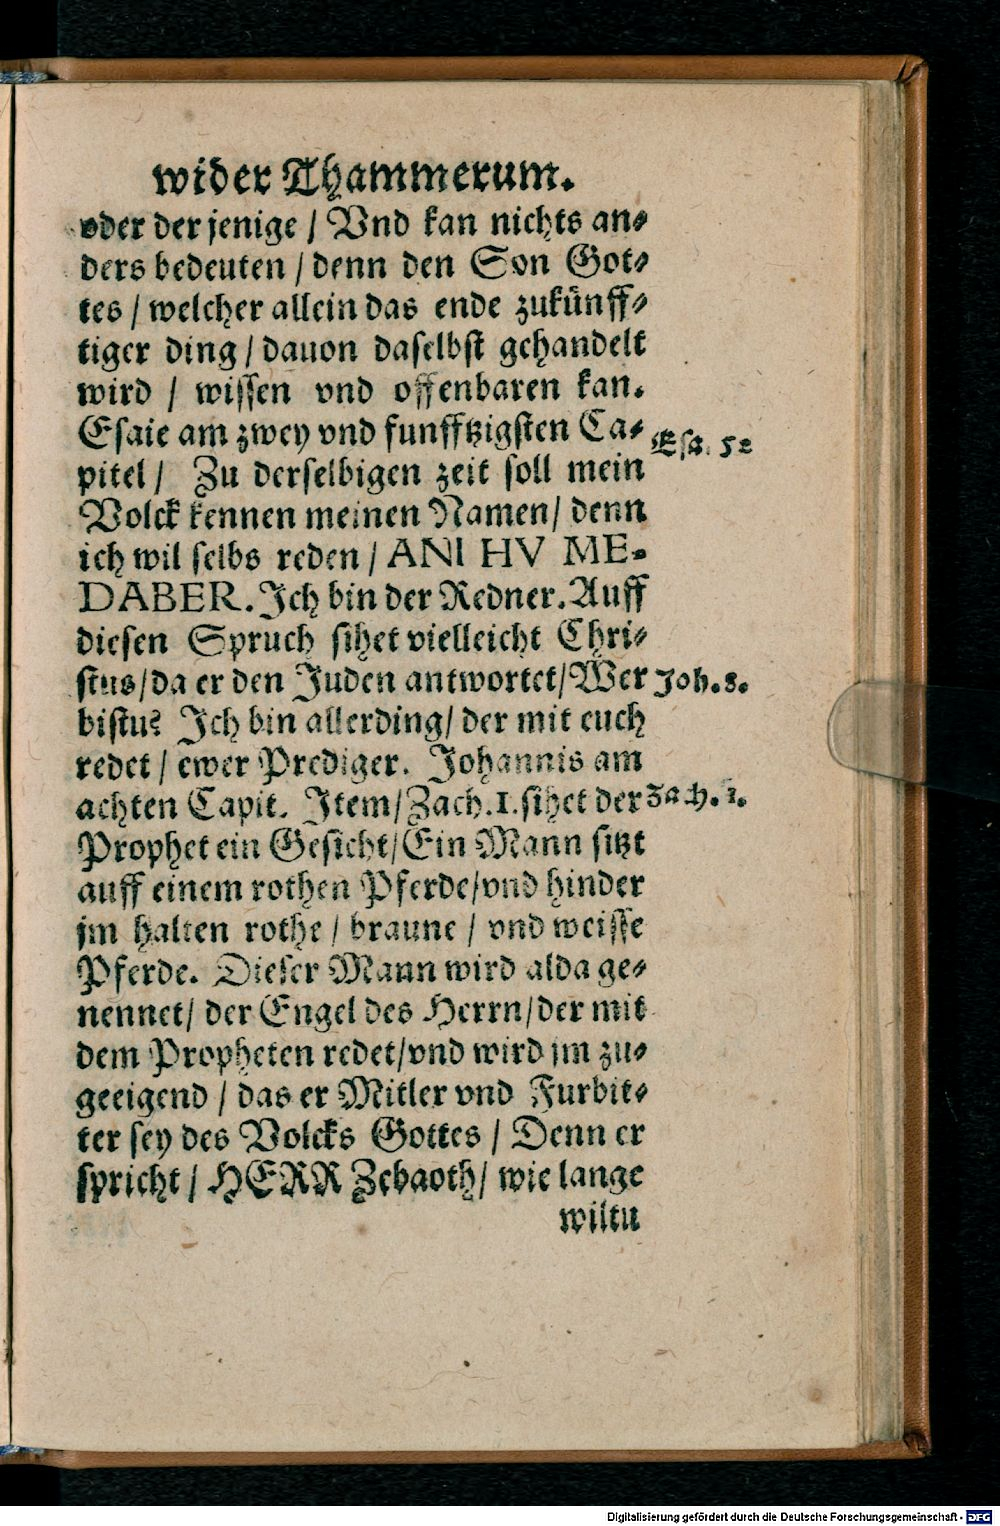 wider Thammerum.
oder der jenige / Vnd kan nichts an⸗
ders bedeuten / denn den Son Got⸗
tes / welcher allein das ende zukünff⸗
tiger ding / dauon daselbst gehandelt
wird / wissen vnd offenbaren kan.
Esaie am zwey vnd funfftzigsten Ca⸗
Esa. 52
pitel / Zu derselbigen zeit soll mein
Volck kennen meinen Namen / denn
ich wil selbs reden / ANI HV ME⸗
DABER. Ich bin der Redner. Auff
diesen Spruch sihet vielleicht Chri⸗
stus / da er den Juden antwortet / Wer
Joh. 8.
bistu? Ich bin allerding / der mit euch
redet / ewer Prediger. Johannis am
achten Capit. Item / Zach. 1. sihet der
Zach. 1.
Prophet ein Gesicht / Ein Mann sitzt
auff einem rothen Pferde / vnd hinder
jm halten rothe / braune / vnd weisse
Pferde. Dieser Mann wird alda ge⸗
nennet / der Engel des Herrn / der mit
dem Propheten redet / vnd wird jm zu⸗
geeigend / das er Mitler vnd Furbit⸗
ter sey des Volcks Gottes / Denn er
spricht / HERR Zebaoth / wie lange
wiltu
Digitalisierung gefördert durch die Deutsche Forschungsgemeinschaft - DFG